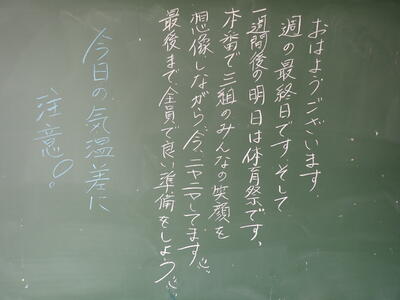 おはようございます.
週の最終日です.そして
一週間後の明日は体育祭です、
本番で三組のみんなの笑顔を
想像しながら、今、ニヤニヤしてます
最後まで、全員で良い準備をしよう
今日の気温差に
注意。